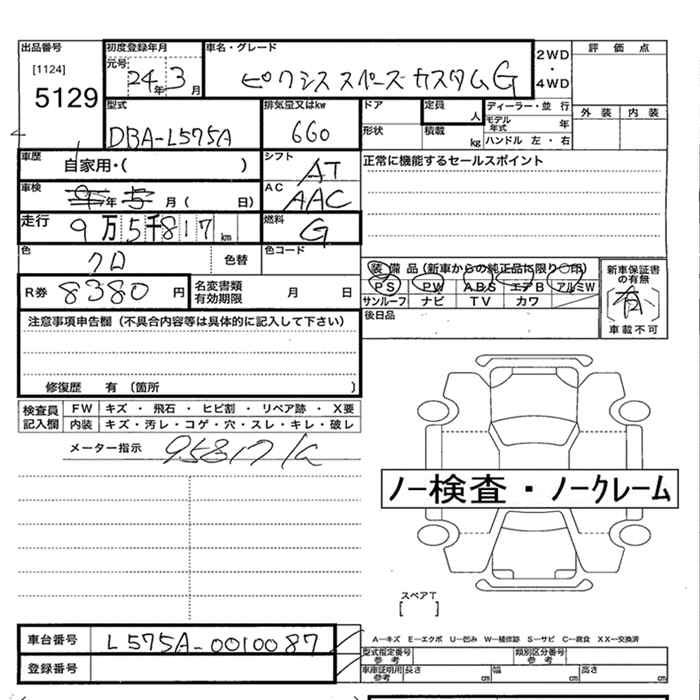 出品番号 初度登録年月 車名・グレード 2WD 評価点
[1124] 元号 24年 3月 ピクシス スペース カスタム G ・
5129 4WD
型式 排気量又はkw ドア 定員 人 ディーラー・並行 外装 内装
DBA-L575A 660 形状 積載 kg モデル年式 年
ハンドル 左・右
車歴 自家用・( ) シフト AT 正常に機能するセールスポイント
車検 年 月 ( 日) AC AAC
走行 9万5千817km 燃料 G
色 クロ 色替 色コード
装備品(新車からの純正品に限り○印) 新車保証書の有無
R券 8380円 名変書類有効期限 月 日 PS PW ABS エアB アルミW 有
サンルーフ ナビ TV カワ 車載不可
注意事項申告欄(不具合内容等は具体的に記入して下さい) 後日品
修復歴 有 (箇所 )
検査員記入欄 FW キズ ・ 飛石 ・ ヒビ割 ・ リペア跡 ・ X要
内装 キズ・汚レ・コゲ・穴・スレ・キレ・破レ
メーター指示 95817K
ノー検査・ノークレーム
スペアT
[ ]
車台番号 L575A-0010087 A−キズ E−エクボ U−凹み W−補修跡 S−サビ C−腐食 XX−交換済
型式指定番号 参考 類別区分番号 参考
登録番号 車庫証明用参考 長さ cm 幅 cm 高さ cm